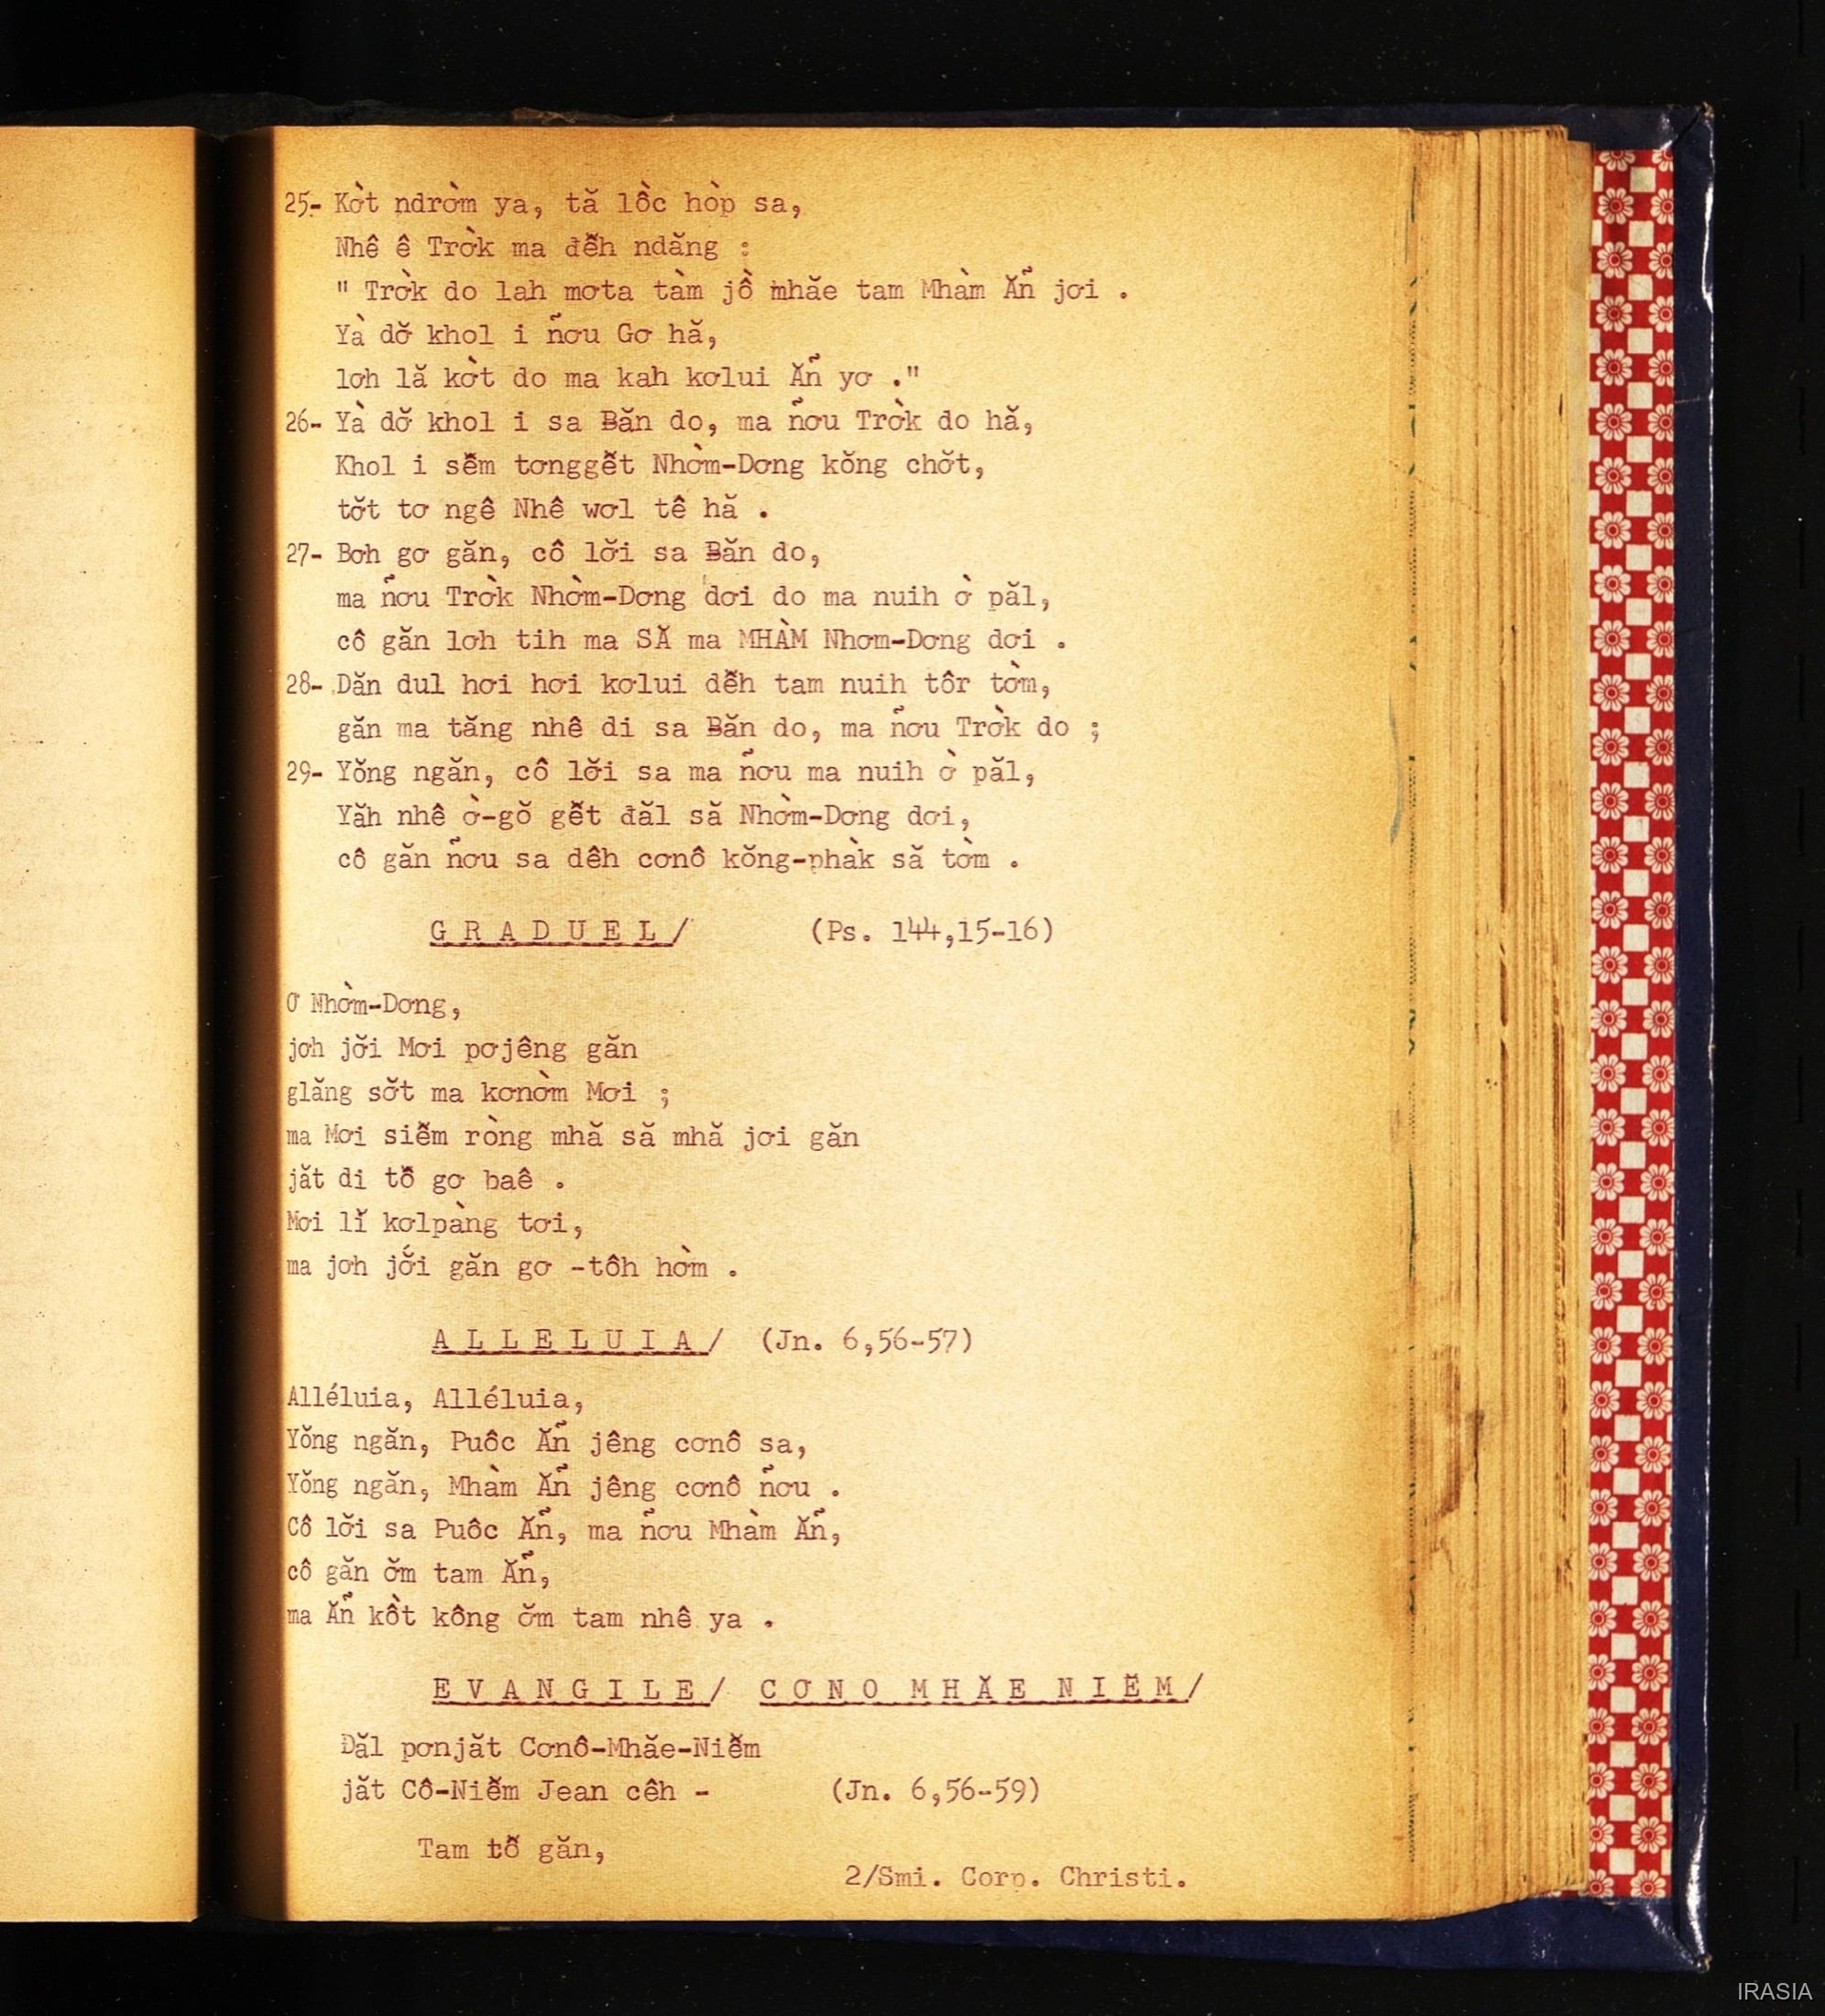 25- Kờt ndrờm ya, tă lồc hòp sa,
Nhê ê Trờk ma đễh ndăng :
" Trờk do lah mơta tàm jồ mhăe tam Mhàm Ăñ jơi .
Yà dơ̆ khol i ñơu Gơ hă,
lơh lă kờt do ma kah kơlui Ăñ yơ ."
26- Yà dơ̆ khol i sa Ƀăn do, ma ñơu Trờk do hă,
Khol i sễm tơnggễt Nhờm-Dơng kŏng chơ̆t,
tơ̆t tơ ngê Nhê wơl tê hă .
27- Bơh gơ găn, cô lơ̆i sa Ƀăn do,
ma ñơu Trờk Nhờm-Dơng dơi do ma nuih ờ păl,
cô găn lơh tih ma SĂ ma MHÀM Nhơm-Dơng dơi .
28- Dăn dul hơi hơi kơlui dễh tam nuih tôr tờm,
găn ma tăng nhê di sa Ƀăn do, ma ñơu Trờk do ;
29- Yŏng ngăn, cô lơ̆i sa ma ñơu ma nuih ờ păl,
Yăh nhê ờ-gŏ gễt đăl să Nhờm-Dơng dơi,
cô găn ñơu sa dêh cơnô kŏng-phàk să tờm .
G R A D U E L / (Ps. 144,15-16)
Ơ Nhờm-Dơng,
jơh jơ̆i Mơi pơjêng găn
glăng sơ̆t ma kơnờm Mơi ;
ma Mơi siễm ròng mhă să mhă jơi găn
jăt di tỗ gơ baê .
Mơi lĭ kơlpàng tơi,
ma jơh jơ̆i găn gơ -tôh hờm .
A L L E L U I A / (Jn. 6,56-57)
Alléluia, Alléluia,
Yŏng ngăn, Puôc Ăñ jêng cơnô sa,
Yŏng ngăn, Mhàm Ăñ jêng cơnô ñơu .
Cô lơ̆i sa Puôc Ăñ, ma ñơu Mhàm Ăñ,
cô găn ơ̆m tam Ăñ,
ma Ăñ kồt kông ơ̆m tam nhê ya .
E V A N G I L E / C Ơ N O M H Ă E N I Ễ M /
Đăl pơnjăt Cơnô-Mhăe-Niễm
jăt Cô-Niễm Jean cêh - (Jn. 6,56-59)
Tam tỗ găn,
2/Smi. Corp. Christi.
IRASIA